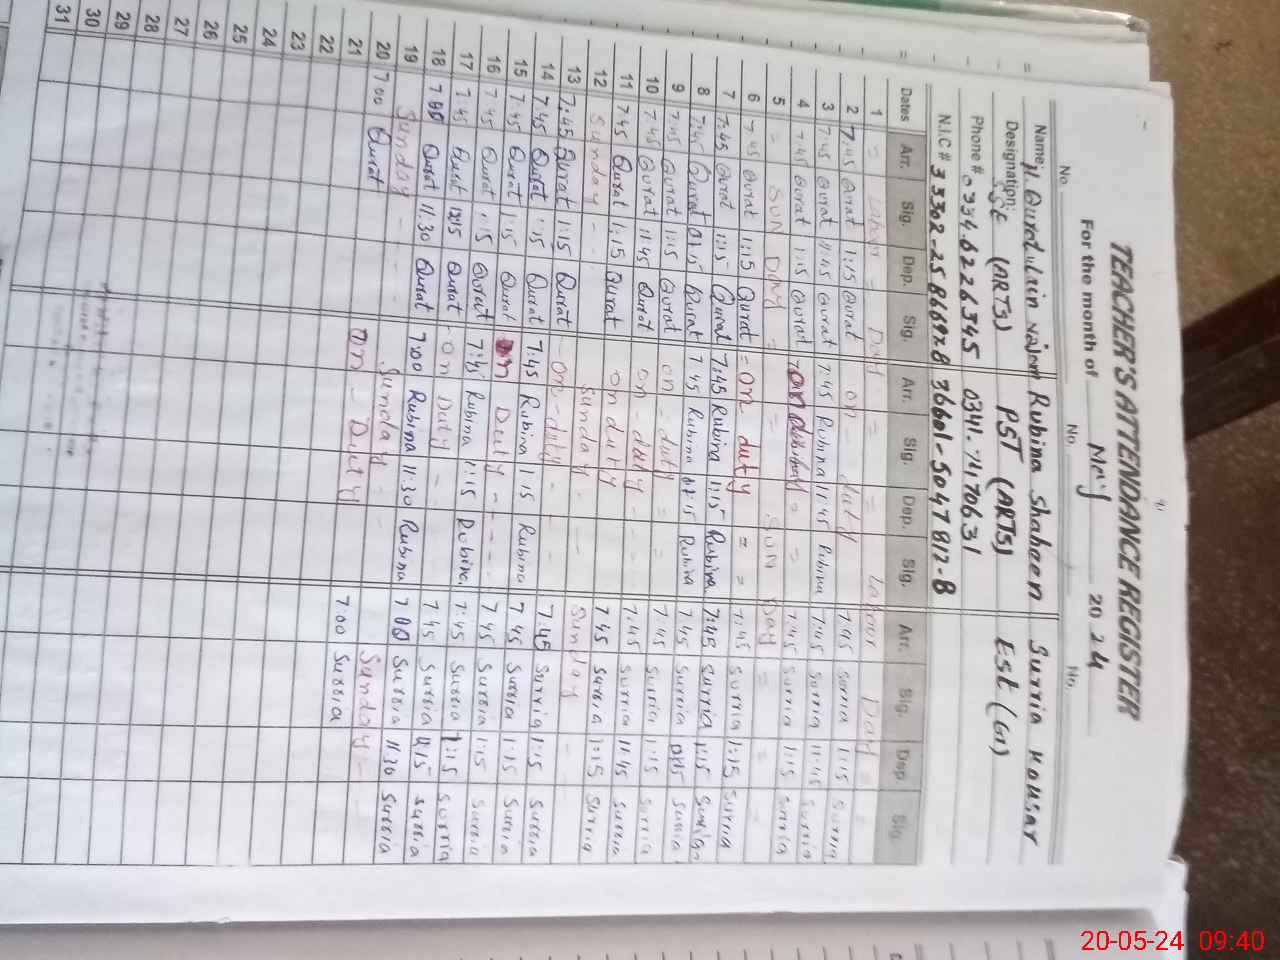 TEACHER'S ATTENDANCE REGISTER
For the month of May 2024
No. No. No.
Name: Rubina Shaheen Surria Kousar
Designation: SSE (ARTS) PST (ARTS) EST (
Phone # 0334.6226345 0341.7170631
N.I.C # 36601-5047812-8
Dates Arr. Sig. Dep. Sig. Arr. Sig. Dep. Sig. Arr. Sig. Dep. Sig.
1 = Labour = Day = = Labour Day =
2 7:45 Qurat 1:15 Qurat on - duty 7:45 surria 1:15 surria
3 7:45 Qurat 11:45 Qurat 7:45 Rubina 11:45 Rubina 7:45 surria 11:45 surria
4 7:45 Qurat 1:15 Qurat on duty = = 7:45 surria 1:15 surria
5 = SUN DAY = = SUN DAY = = =
6 7:45 Qurat 1:15 Qurat = on duty = = 7:45 surria 1:15 surria
7 7:45 Qurat 1:15 Qurat 7:45 Rubina 1:15 Rubina 7:45 surria 1:15 surria
8 7:45 Qurat 1:15 Qurat 7:45 Rubina 1:15 Rubina 7:45 surria 1:15 surria
9 7:45 Qurat 1:15 Qurat on - duty = = 7:45 surria 1:15 surria
10 7:45 Qurat 11:45 Qurat on - duty - - - 7:45 surria 11:45 surria
11 7:45 Qurat 1:15 Qurat on duty 7:45 surria 1:15 surria
12 Sunday - - Sunday - - - Sunday -
13 7:45 Qurat 1:15 Qurat - on - duty - - 7:45 surria 1:15 surria
14 7:45 Qurat 1:15 Qurat 7:45 Rubina 1:15 Rubina 7:45 surria 1:15 surria
15 7:45 Qurat 1:15 Qurat on Duty - - - - 7:45 surria 1:15 surria
16 7:45 Qurat 1:15 Qurat 7:45 Rubina 1:15 Rubina 7:45 surria 1:15 surria
17 7:45 Qurat Qurat - on Duty - - 7:45 surria surria
18 7:00 Qurat 11:30 Qurat 7:00 Rubina 11:30 Rubina 7:00 surria 11:30 surria
19 Sunday - - Sunday - Sunday -
20 7:00 Qurat on - Duty 7:00 surria
21
22
23
24
25
26
27
28
29
30
31
20-05-24 09:40